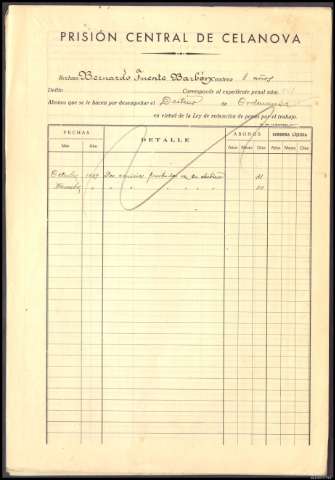 PRISIÓN CENTRAL DE CELANOVA
Recluso Bernardo Fuente Barbón condena 8 años
Delito Corresponde al expediente penal núm.
Abonos que se le hacen por desempeñar el Destino de Ordenanza
en virtud de la Ley de redención de penas por el trabajo.
FECHAS DETALLE ABONOS CONDENA LÍQUIDA
Mes Año Años Meses Días Años Meses Días
Octubre Por servicios prestados en su destino
" " " " "